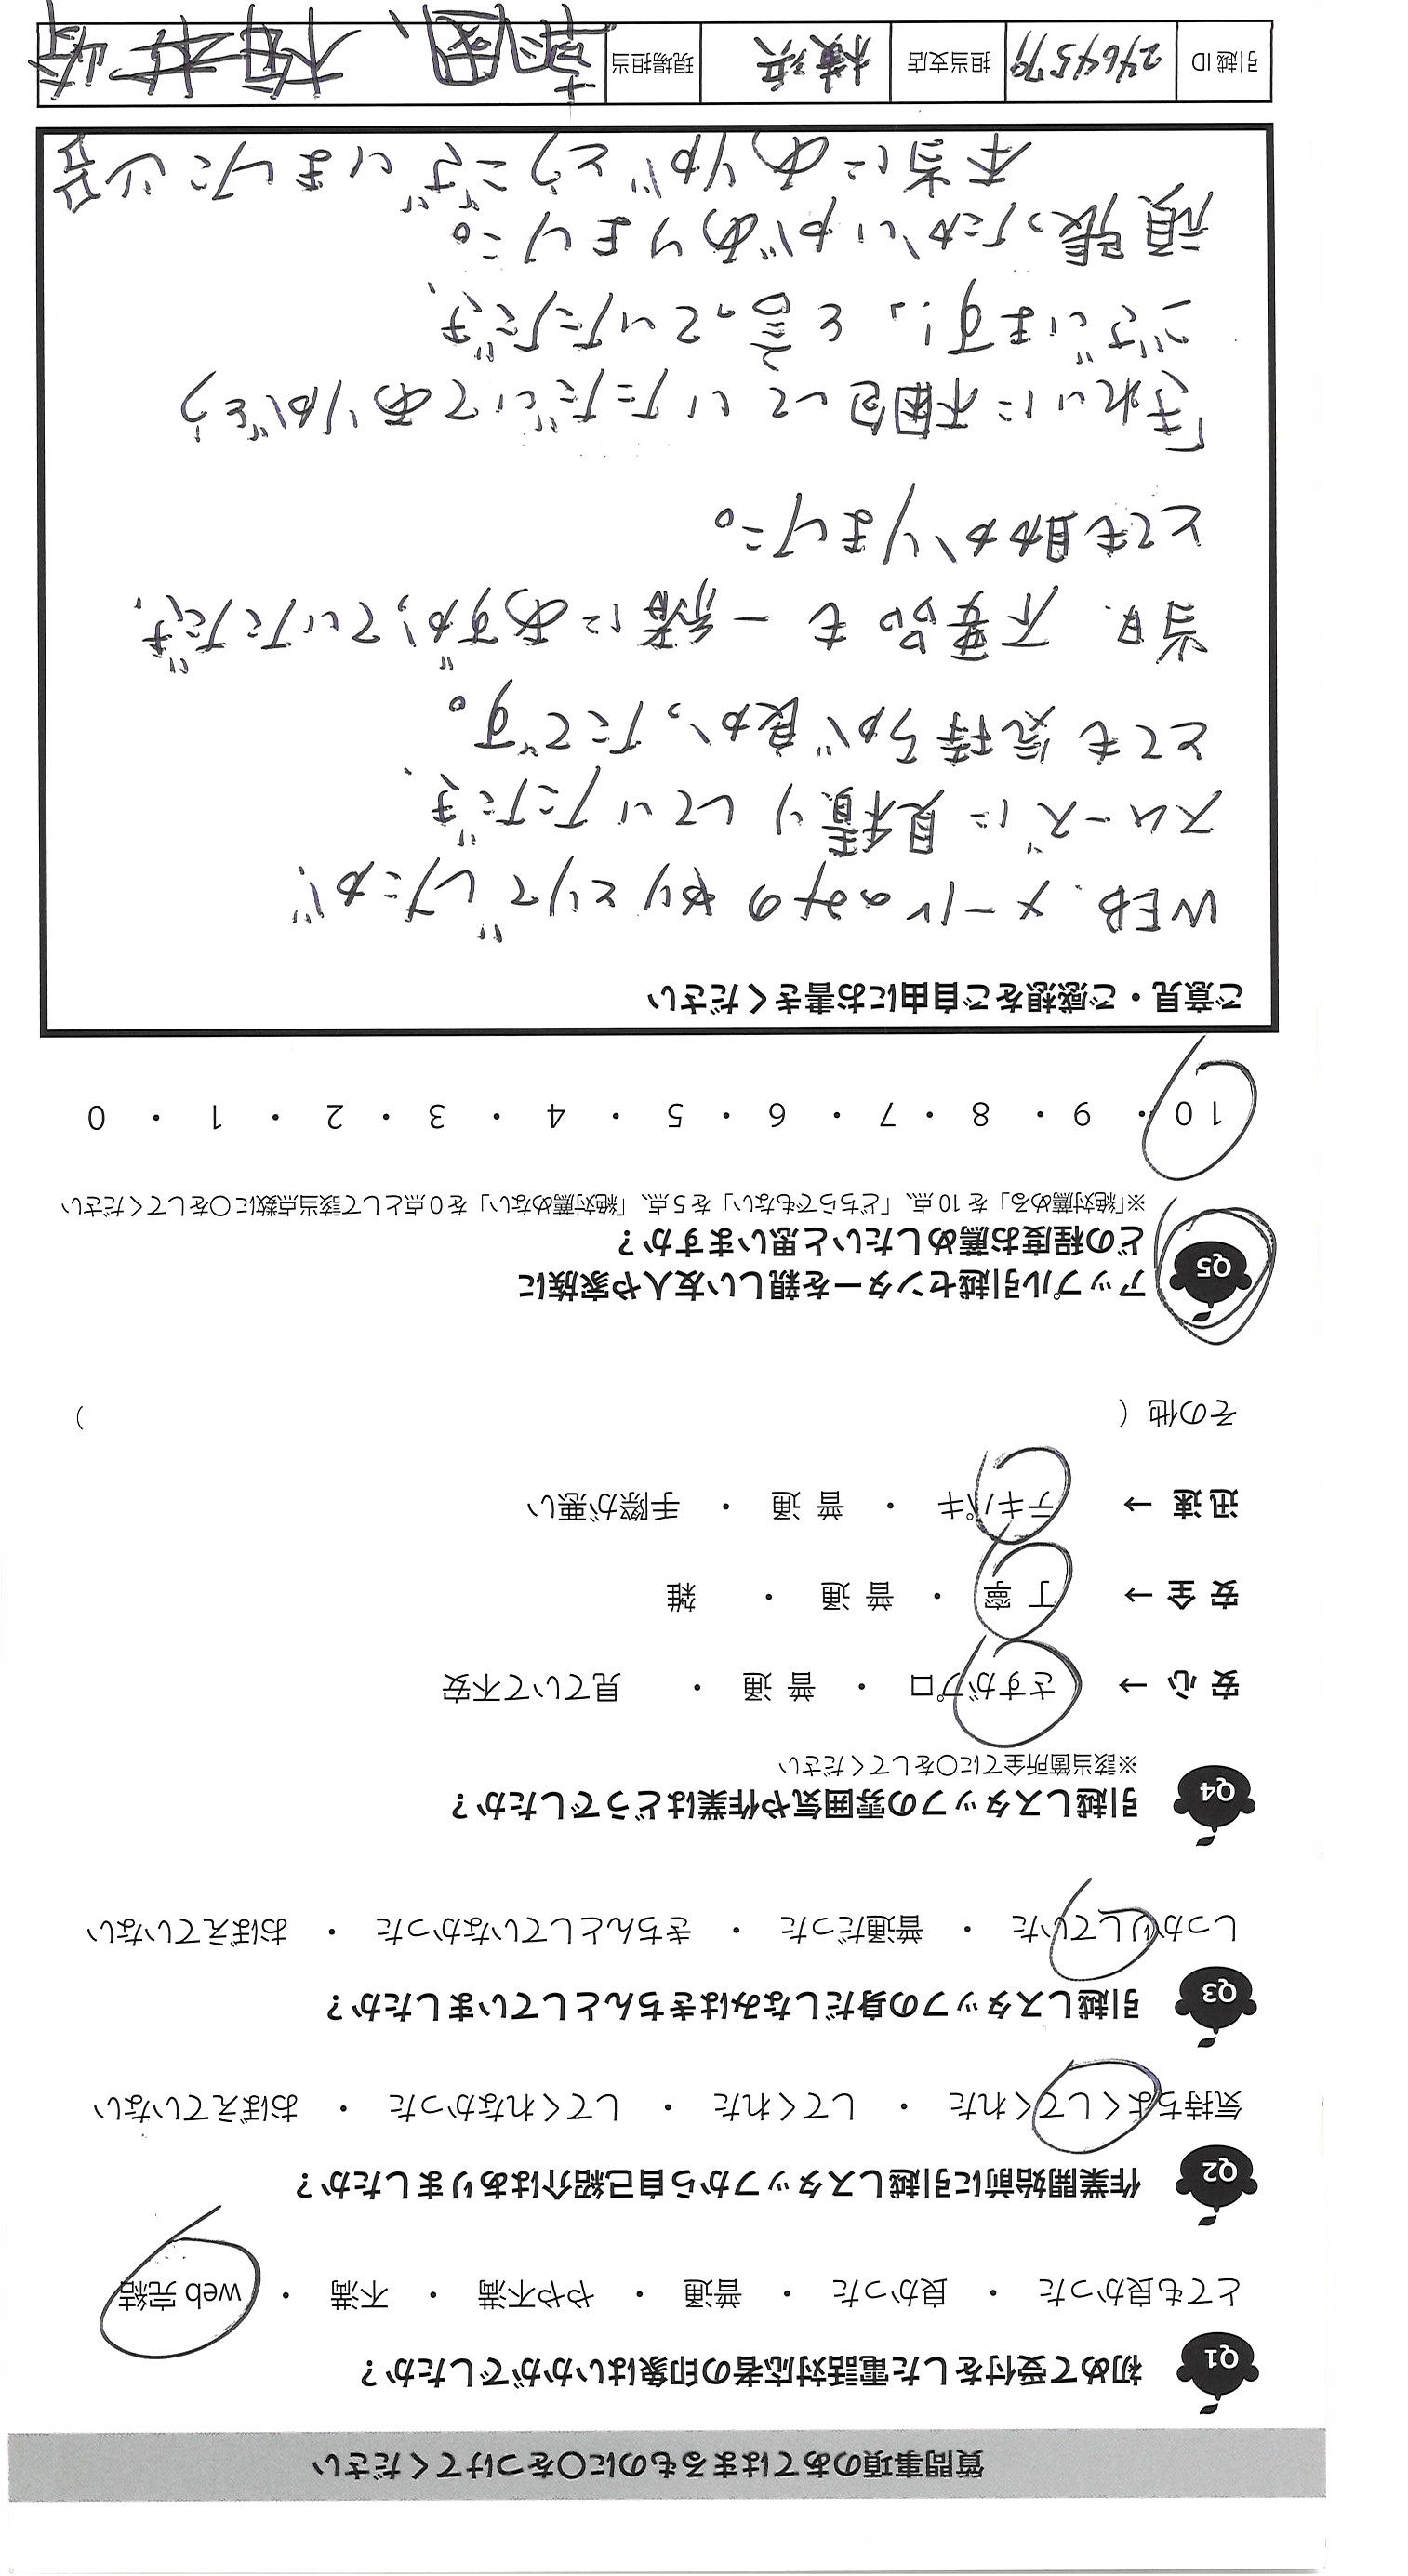 質問事項のあてはまるものに〇をつけてください
Q1 初めて受付をした電話対応者の印象はいかがでしたか？
とても良かった ・ 良かった ・ 普通 ・ やや不満 ・ 不満 ・ web 完結
Q2 作業開始前に引越しスタッフから自己紹介はありましたか？
気持ちよくしてくれた ・ してくれた ・ してくれなかった ・ おぼえていない
Q3 引越しスタッフの身だしなみはきちんとしていましたか？
しっかりしていた ・ 普通だった ・ きちんとしていなかった ・ おぼえていない
Q4 引越しスタッフの雰囲気や作業はどうでしたか？
※該当箇所全てに〇をしてください
安 心 → さすがプロ ・ 普 通 ・ 見ていて不安
安 全 → 丁 寧 ・ 普 通 ・ 雑
迅 速 → テキパキ ・ 普 通 ・ 手際が悪い
その他（ ）
Q5 アップル引越センターを親しい友人や家族に
どの程度お薦めしたいと思いますか？
※「絶対薦める」を 10 点、「どちらでもない」を 5 点、「絶対薦めない」を 0 点として該当点数に〇をしてください
10 ・ 9 ・ 8 ・ 7 ・ 6 ・ 5 ・ 4 ・ 3 ・ 2 ・ 1 ・ 0
ご意見・ご感想をご自由にお書きください
WEB、メールのみのやりとりでしたが、
スムーズに見積りしていただき、
とても気持ちが良かったです。
当日、不要品も一緒にあずかっていただき、
とても助かりました。
「きれいに梱包していただいてありがとう
ございます!」と言っていただき、
頑張ったかいがありました。
本当にありがとうございました
引越 ID 2464579 担当支店 横浜 現場担当